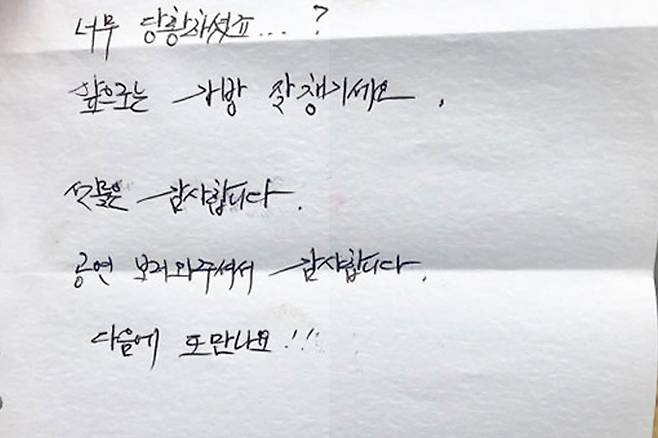 너무 당황하셨죠... ?
앞으로는 가방 잘 챙기세요.
선물은 감사합니다.
공연 보러와주셔서 감사합니다.
다음에 또 만나요!!!